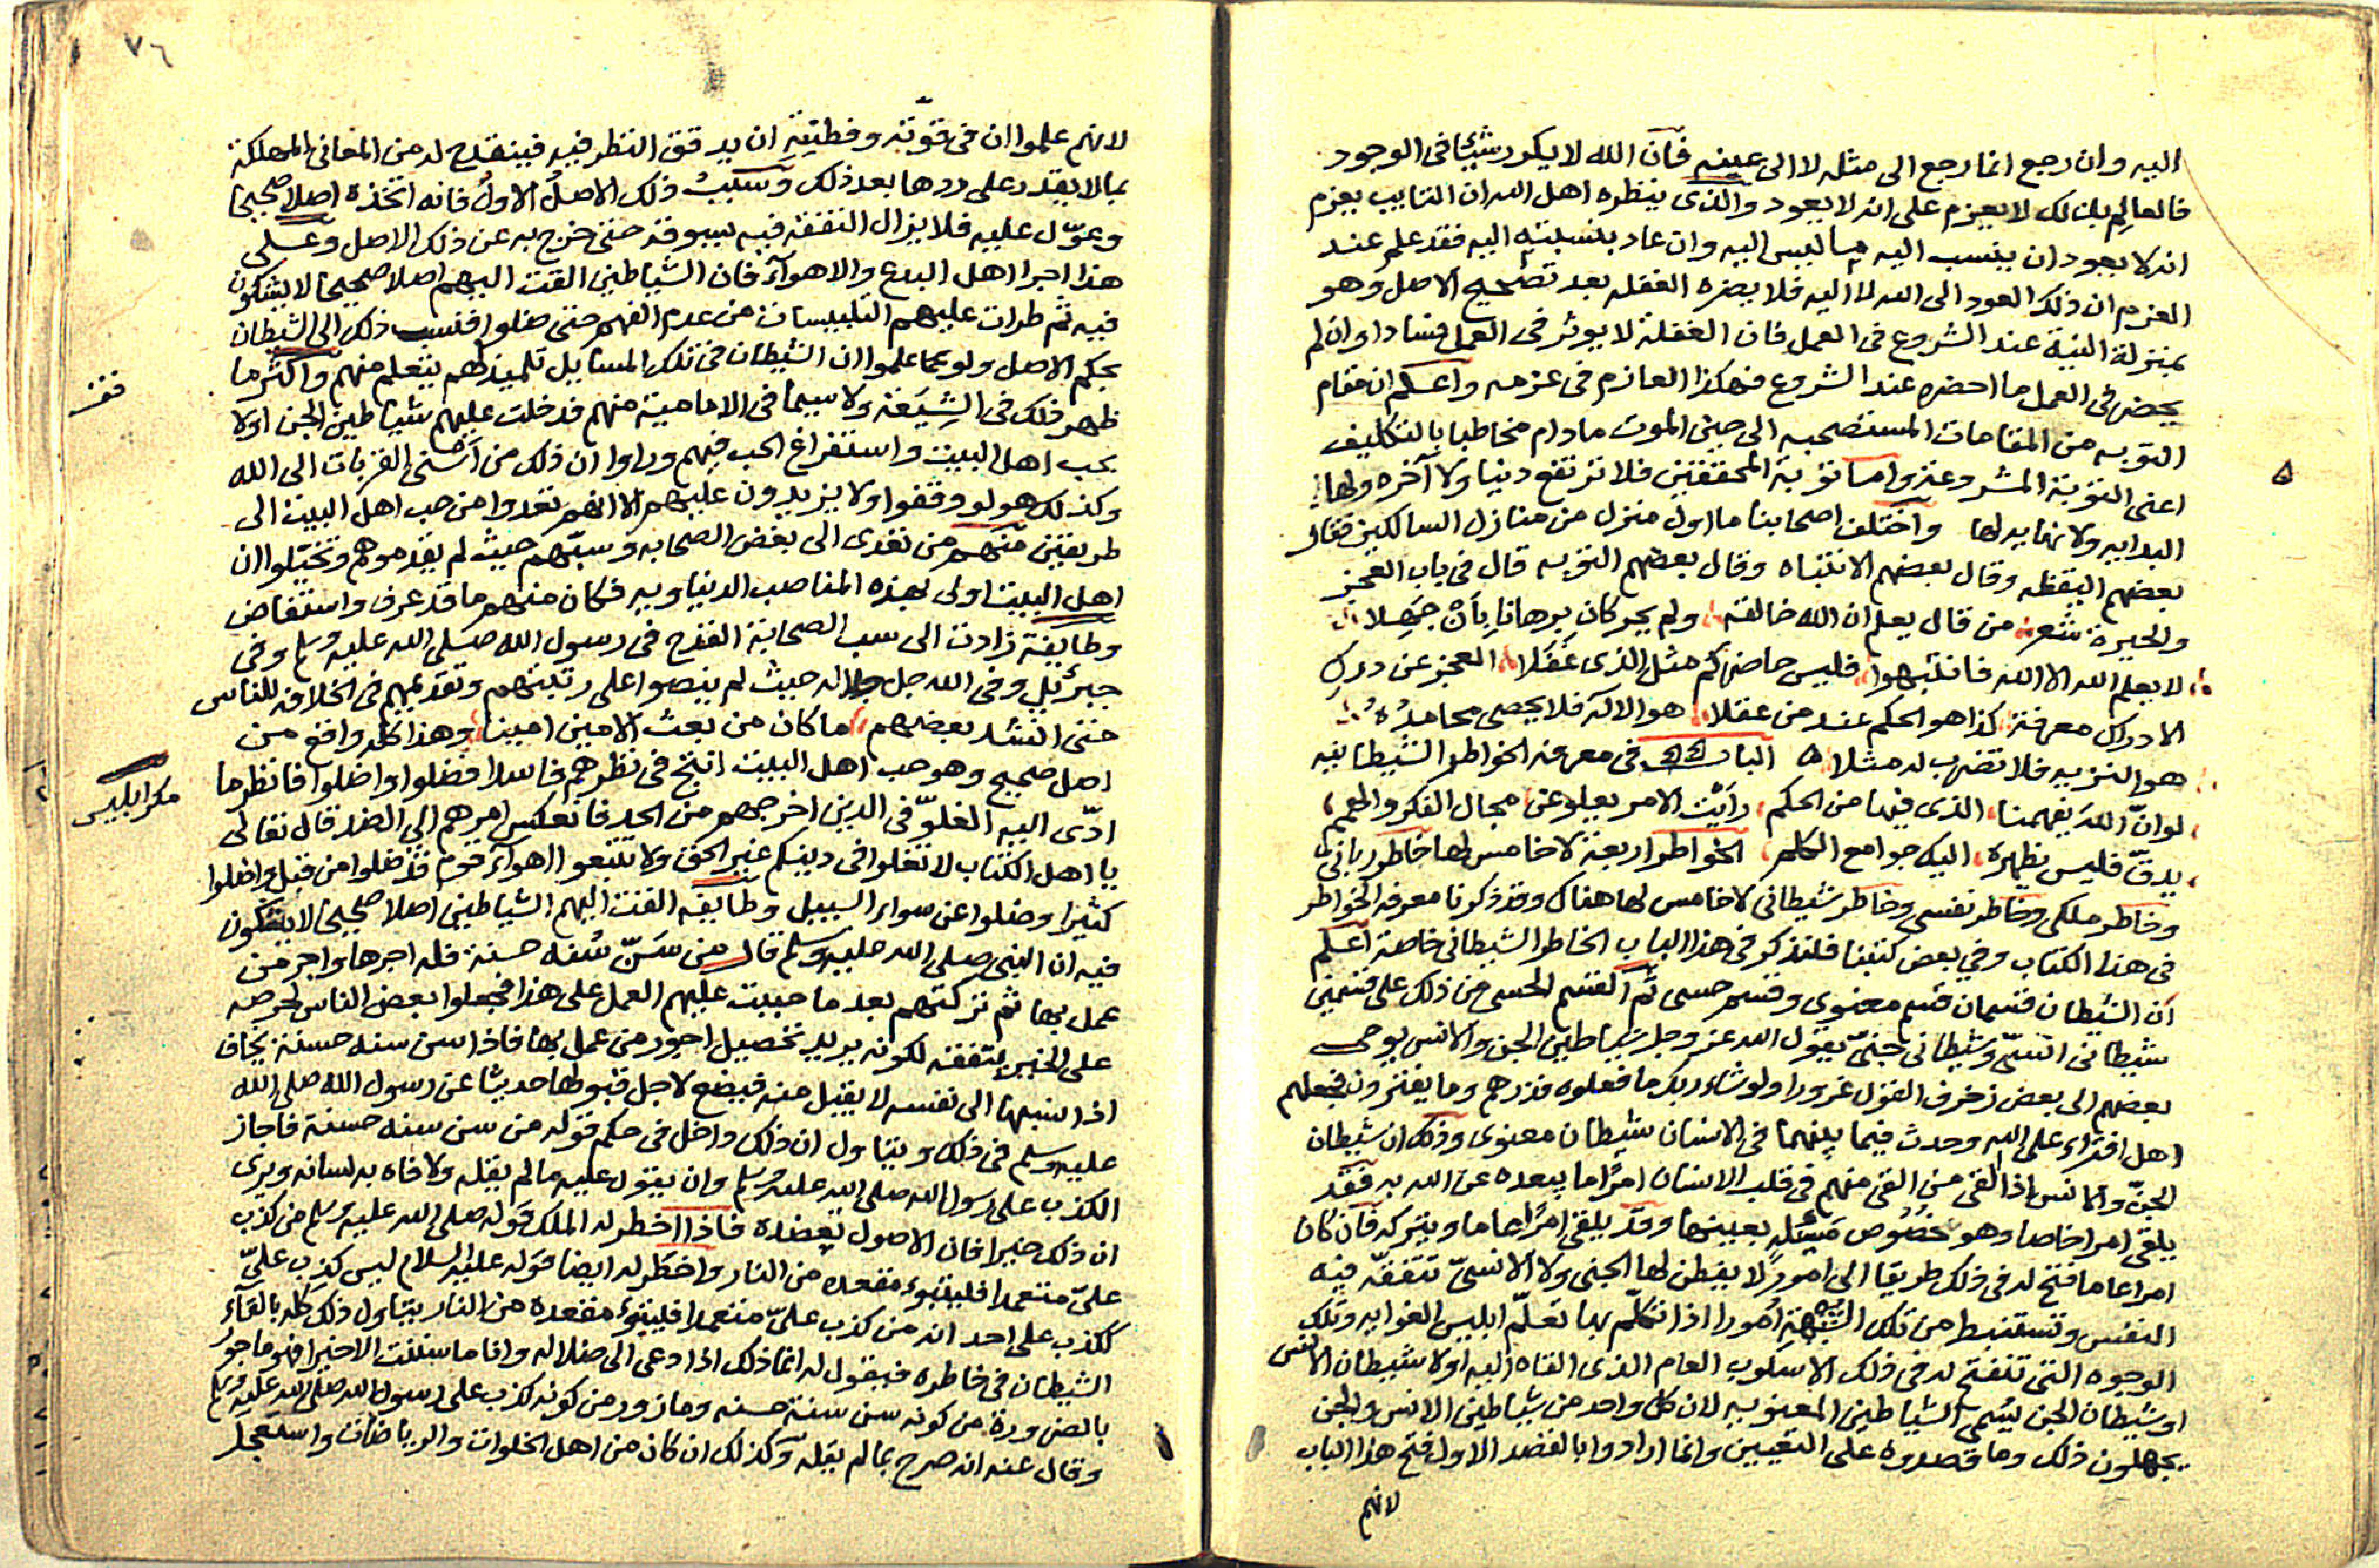 اليه وان رجع انما رجع الى مثله لا الى عينه فان الله لا يكرر شيئا فى الوجود
فالعالم بذلك لا يعزم على انه لا يعود والذى ينظره اهل الله ان التايب يعزم
انه لا يعود ان ينسب اليه ما ليس اليه وان عاد بنسبته اليه فقد علم عند
العزم ان ذلك العود الى الله لا اليه فلا يضره الغفله بعد تصحيح الاصل وهو
بمنزلة النية عند الشروع فى العمل فان الغفلة لا يوثر فى العمل فسادا وان لم
يحضر فى العمل ما احضره عند الشروع فهكذا العازم فى عزمه واعلم ان مقام
التوبه من المقامات المستصحبه الى حين الموت مادام مخاطبا بالتكليف
اعنى التوبة المشروعة واما توبة المحققين فلا ترتفع دنيا ولا آخره ولها
البدايه ولا نهايه لها واختلف اصحابنا ما اول منزل من منازل السالكين فقال
بعضهم اليقظه وقال بعضهم الانتباه وقال بعضهم التوبه قال فى باب العجز
والحيرة شعر من قال يعلم ان الله خالقه ولم يحر كان برهانا بأن جهلا
لا يعلم الله الا الله فانتبهوا فليس حاضركم مثل الذى غفلا العجز عن درك
الادراك معرفة كذا هو الحكم عند من عقلا هو الاله فلا يحصى محامده
هو النزيه فلا تضرب له مثلا الباب فى معرفه الخواطر الشيطانيه
لو ان الله يفهمنا الذى فيها من الحكم رأيت الامر يعلو عن مجال الفكر والهمم
يدق فليس يظهره اليك جوامع الكلم الخواطر اربعة لا خامس لها خاطر ربانى
وخاطر ملكى وخاطر نفسى وخاطر شيطانى لا خامس لها هناك وقد ذكرنا معرفه الخواطر
فى هذا الكتاب وفي بعض كتبنا فلنذكر فى هذا الباب الخاطر الشيطانى خاصة اعلم
ان الشيطان قسمان قسم معنوى وقسم حسى ثم القسم الحسى من ذلك على قسمين
شيطانى انسى وشيطانى جنى يقول الله عز وجل شياطين الجن والانس يوحى
بعضهم الى بعض زخرف القول غرورا ولو شاء ربك ما فعلوه فذرهم وما يفترون فجعلهم
اهل افتراء على الله وحدث فيما بينهما فى الانسان شيطان معنوى وذلك ان شيطان
الجن والانس اذا القى من القى منهم فى قلب الانسان امرا ما يبعده عن الله به فقد
يلقى امرا خاصا وهو خصوص مسئله بعينها وقد يلقى امرا عاما ويتركه فان كان
امرا عاما فتح له فى ذلك طريقا الى امور لا يفطن لها الجنى ولا الانسى تتفقه فيه
النفس وتستنبط من تلك الشبهة امورا اذا تكلم بها تعلم ابليس الغوايه وتلك
الوجوه التى تنفتح له فى ذلك الاسلوب العام الذى القاه اليه اولا شيطان الانس
او شيطان الجن يسمى الشياطين المعنويه لان كل واحد من شياطين الانس والجن
يجهلون ذلك وما قصدوه على التعيين وانما ارادوا بالقصد الاول فتح هذا الباب
لانهم
٧٦
لانهم علموا ان فى قوته وفطنته ان يدقق النظر فيه فينقدح له من المعانى المهلكة
بما لا يقدر على ردها بعد ذلك وسبب ذلك الاصل الاول فانه اتخذه اصلا صحيحا
وعول عليه فلا يزال التفقه فيه يسوقه حتى خرج به عن ذلك الاصل وعلى
هذا اجرا اهل البدع والاهواء فان الشياطين القت اليهم اصلا صحيحا لا يشكون
فيه ثم طرات عليهم التلبيسات من عدم الفهم حتى ضلوا فنسب ذلك الى الشيطان
بحكم الاصل ولو علموا ان الشيطان فى تلك المسايل تلميذ لهم يتعلم منهم واكثر ما
ظهر ذلك فى الشيعة ولا سيما فى الامامية منهم فدخلت عليهم شياطين الجن اولا
بحب اهل البيت واستفراغ الحب فيهم وراوا ان ذلك من اسنى القربات الى الله
وكذلك هو لو وقفوا ولا يزيدون عليهم الا انهم تعدوا من حب اهل البيت الى
طريقين منهم من تعدى الى بغض الصحابه وسبهم حيث لم يقدموهم وتخيلوا ان
اهل البيت اولى بهذه المناصب الدنياويه فكان منهم ما قد عرف واستفاض
وطايفة زادت الى سب الصحابة القدح فى رسول الله صلى الله عليه وسلم وفى
جبرئيل وفى الله جل جلاله حيث لم ينصوا على رتبتهم وتقديمهم فى الخلافه للناس
حتى انشد بعضهم ما كان من بعث الامين امينا وهذا كله واقع من
اصل صحيح وهو حب اهل البيت انتج فى نظرهم فاسدا فضلوا واضلوا فانظر ما
ادى اليه الغلو فى الدين اخرجهم من الحد فانعكس امرهم الى الضد قال تعالى
يا اهل الكتاب لا تغلوا فى دينكم غير الحق ولا تتبعوا اهواء قوم قد ضلوا من قبل واضلوا
كثيرا وضلوا عن سواء السبيل وطايفه القت اليهم الشياطين اصلا صحيحا لا يشكون
فيه ان النبى صلى الله عليه وسلم قال من سن سنه حسنة فله اجرها واجر من
عمل بها ثم تركتهم بعد ما حببت عليهم العمل على هذا فجعلوا بعض الناس لحرصه
على الخير يتفقه لكونه يريد تحصيل اجور من عمل بها فاذا سن سنه حسنة يخاف
اذا نسبها الى نفسه لا يقبل منه فيضع لاجل قبولها حديثا عن رسول الله صلى الله
عليه وسلم فى ذلك ويتاول ان ذلك داخل فى حكم قوله من سن سنه حسنة فاجاز
الكذب على رسول الله صلى الله عليه وسلم وان يقول عليه ما لم يقله ولا فاه به لسانه ويرى
ان ذلك خيرا فان الاصول تعضده فاذا اخطر له الملك قوله صلى الله عليه وسلم من كذب
على متعمدا فليتبوء مقعده من النار واخطر له ايضا قوله عليه السلام ليس كذب على
ككذب على احد انه من كذب على متعمدا فليتبوء مقعده من النار يتاول ذلك كله بالقاء
الشيطان فى خاطره فيقول له انما ذلك اذا دعى الى ضلاله وانا ما سننت الا خيرا فهو ماجور
بالضرورة من كونه سن سنة حسنه ومازور من كونه كذب على رسول الله صلى الله عليه وسلم
وقال عنه انه صرح بما لم يقله وكذلك ان كان من اهل الخلوات والرياضات واستعجل
مكر ابليس